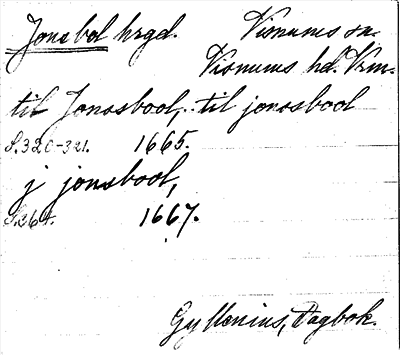 Jonsbol hrgd. Visnums sn.
Visnums hd. Vrm.
til Jonssbool, til jonssbool
S. 320-321. 1665.
j jonsbool,
S. 364. 1667.
Gyllenius, Dagbok.